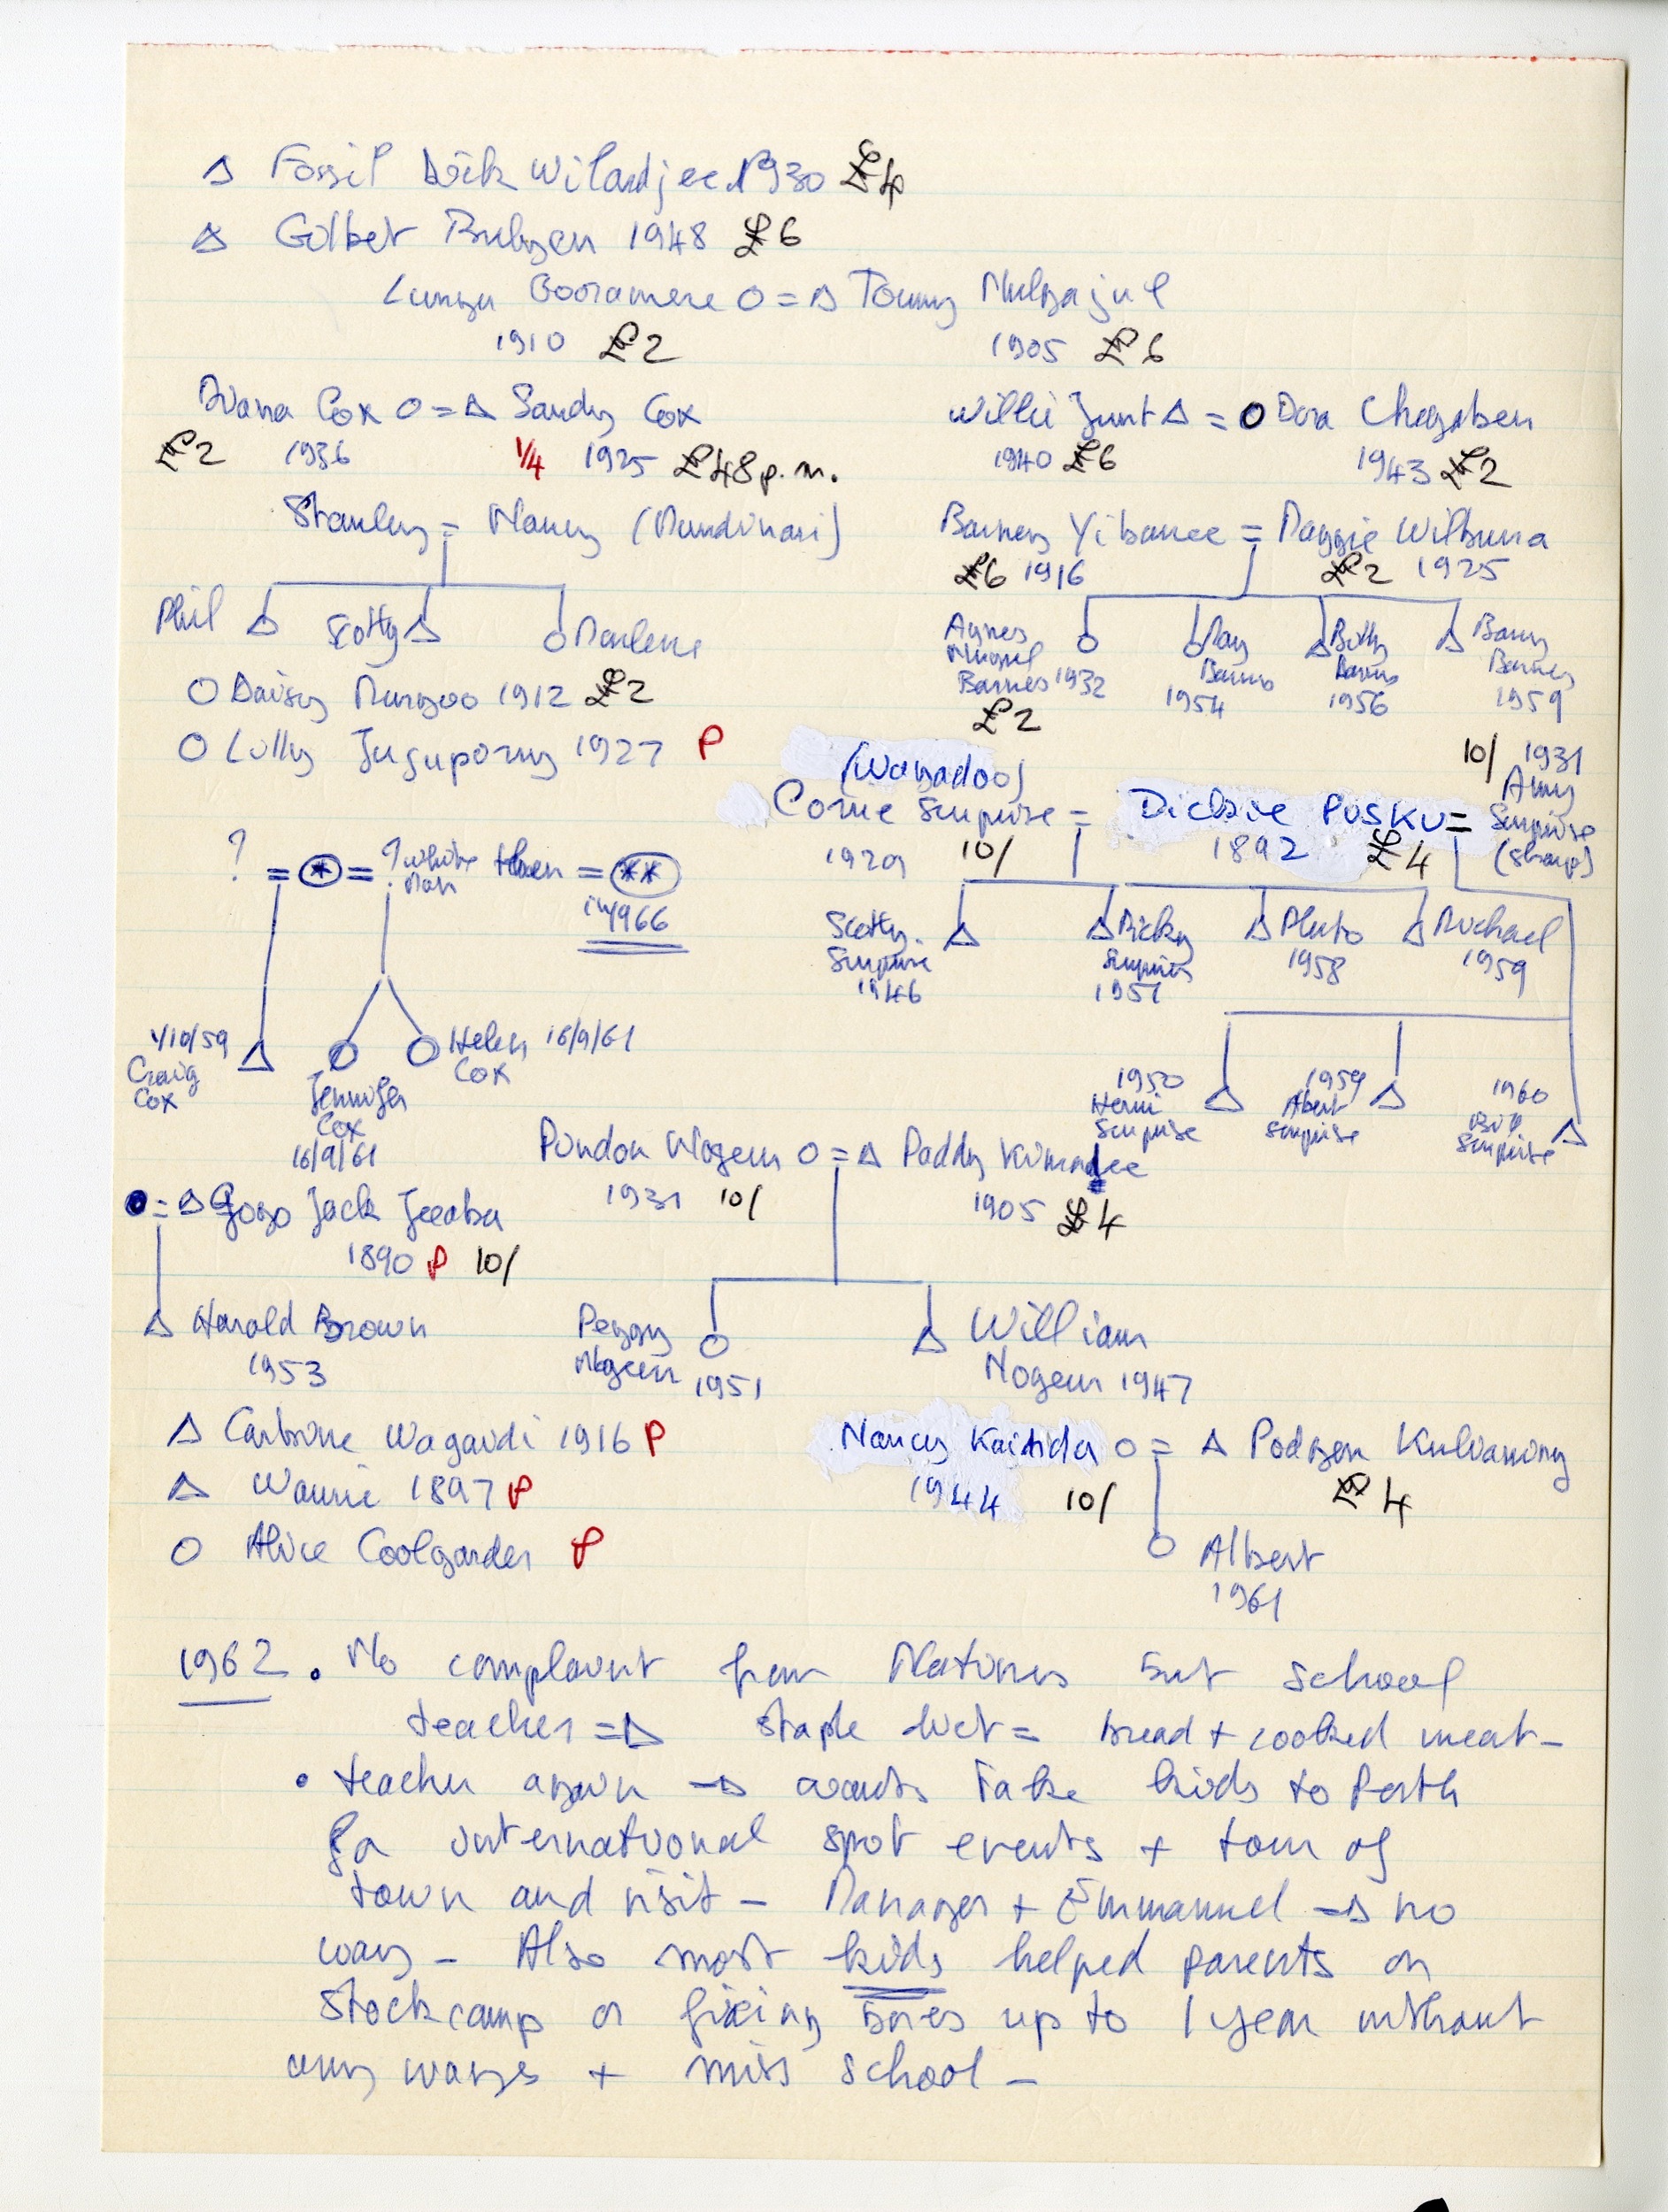 Δ Fossil Dick Wilandjee 1930 £4
Δ Gilbert Bulgen 1948 £6
Booramere O = Δ Tommy
1910 £2 1905 £6
Diana Cox O = Δ Sandy Cox
£2 1936 1/4 1925 £48 p.m.
Willie Δ = O Dora
1940 £6 1943 £2
Stanley = Nancy (Mundinari)
Phil Δ Scotty Δ O Marlene
Barney Yibancee = Maggie Wilbura
£6 1916 £2 1925
Agnes Barnes 1932 £2
O May Barnes 1954
Δ Billy Barnes 1956
Δ Barry Barney 1959
O Daisy Mungoo 1912 £2
O Lilly 1927 P
(Wangadoo)
Corrie Surprise = Dickie PUSKU =
1929 10/ 1892 £4
10/ 1931
Amy
Surprise
(Sharp)
? = * = ? white man then = **
in 1966
Scotty Surprise 1946 Δ
Δ Ricky Surprise
Δ Pluto 1958
Δ Michael 1959
1/10/59 Δ
Craig
Cox
O
Jennifer
Cox
16/9/61
O Helen 16/9/61
Cox
1950 Δ
Surprise
1959 Δ
Albert
Surprise
1960
Bill
Surprise Δ
Pundon Nogeen O = Δ Paddy
1931 10/ 1905 £4
O = Δ Gogo Jack
1890 P 10/
Δ Harold Brown
1953
Peggy Nogeen O 1951
Δ William
Nogeen 1947
Δ Carbine Wagardi 1916 P
Δ Warrie 1897 P
O Alice Coolgarder P
Nancy Kaidida O = Δ Podgen
1944 10/ £4
O Albert
1961
1962. No complaint from Natives but school
teacher => staple diet = bread + cooked meat -
• teacher again → wants take kids to Perth
for international spot events + tour of
town and visit - Manager + Emmanuel → no
way - Also most kids helped parents on
stockcamp or fixing bores up to 1 year without
any wages + miss school -